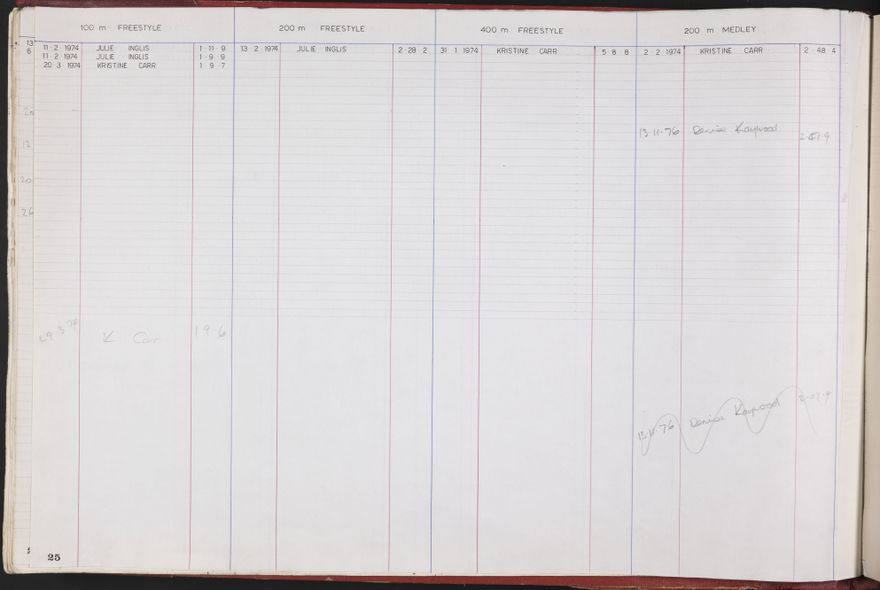 100 m FREESTYLE
200 m FREESTYLE
400 m FREESTYLE
200 m MEDLEY
13
6
11·2·1974 JULIE INGLIS 1·11·9
11·2·1974 JULIE INGLIS 1·9·9
20·3·1974 KRISTINE CARR 1·9·7
13 2·1974 JULIE INGLIS 2·28·2
31·1·1974 KRISTINE CARR 5·8·8
2·2·1974 KRISTINE CARR 2·48·4
13·11·76 Denise Kaywood
20
26
K Carr 1 9·6
13·11·76 Denise Kaywood
25